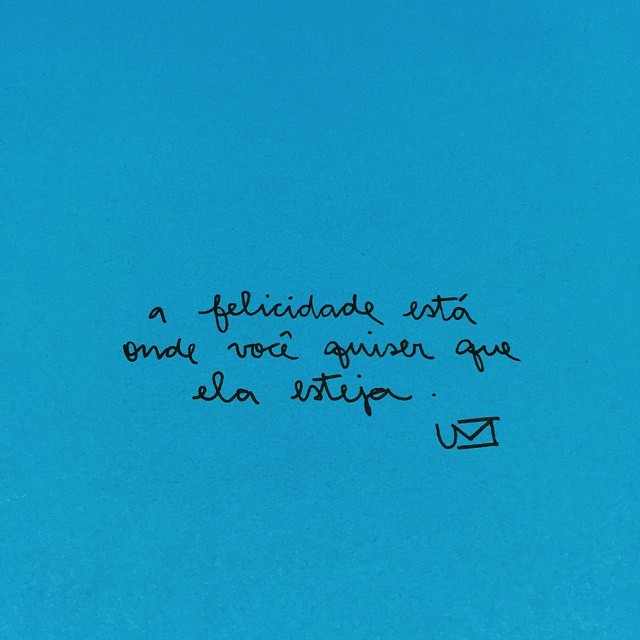 a felicidade está
onde você quiser que
ela esteja.